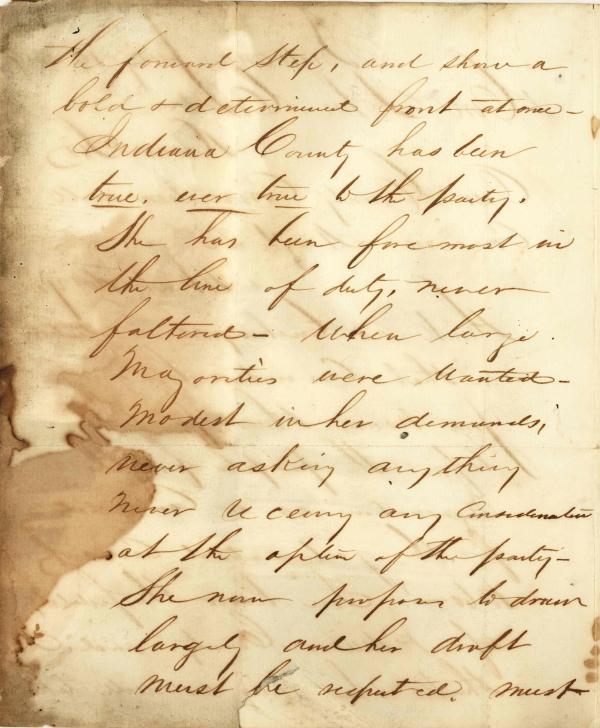 the forward step, and show a
bold & determined front at once -
Indiana County has been
true, ever true to the party.
She has been foremost in
the line of duty, never
faltered - When large
Majorities were wanted -
Modest in her demands,
never asking anything
never receiving any Consideration
at the option of the party -
She now proposes to draw
largely and her draft
must be respected. must